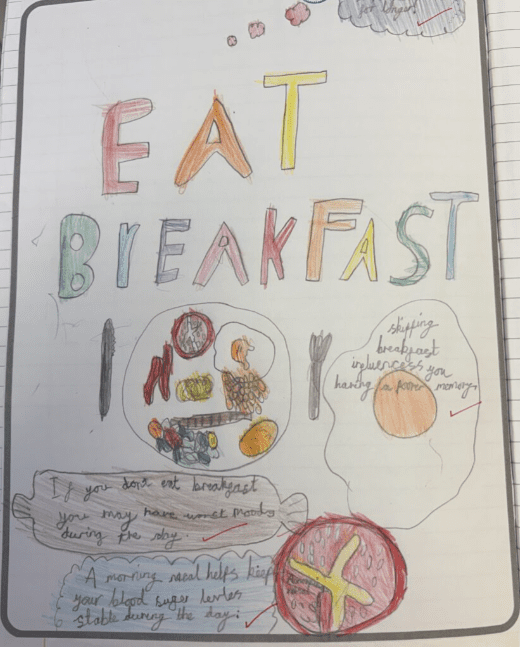 for longer!
EAT
BrEAKFAST
skipping
breakfast
influencess you
having a poorer memory.
If you don't eat breakfast
you may have worst moods
during the day.
A morning meal helps keep
your blood suger levles
stable during the day!